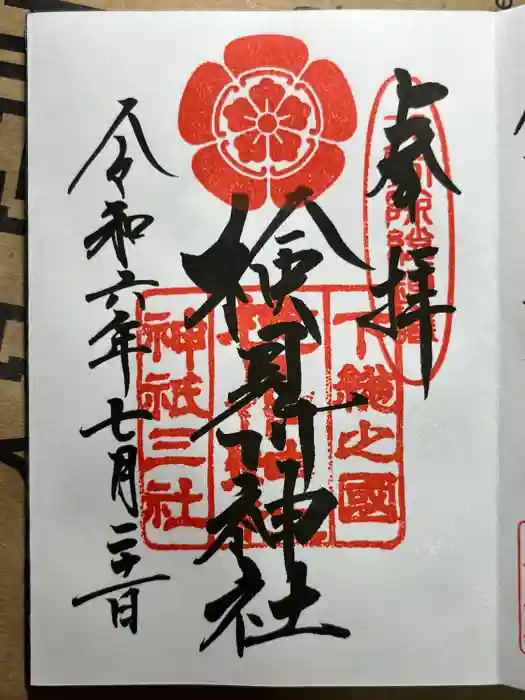 奉拝
下総之國
検見川神社
神祇三社
令和六年七月二十一日